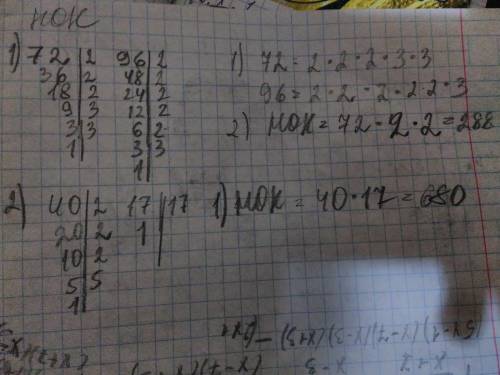 НОК
1) 72|2 96|2
36|2 48|2
18|2 24|2
9|3 12|2
3|3 6|2
1| 3|3
1|
1) 72 = 2·2·2·3·3
96 = 2·2·2·2·2·3
2) НОК = 72·2·2 = 288
2) 40|2 17|17
20|2 1|
10|2
5|5
1|
1) НОК = 40·17 = 680